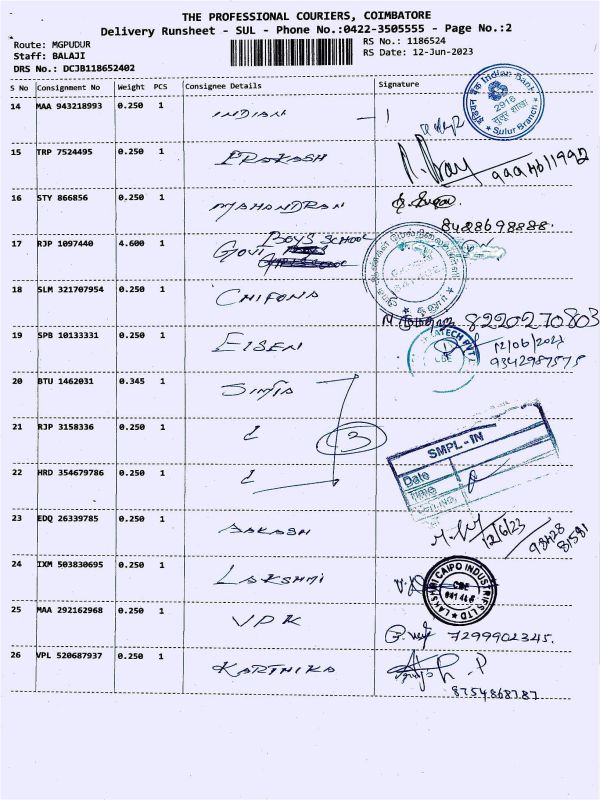 THE PROFESSIONAL COURIERS, COIMBATORE
Delivery Runsheet - SUL - Phone No.:0422-3505555 - Page No.:2
Route: MGPUDUR
RS No.: 1186524
Staff: BALAJI
RS Date: 12-Jun-2023
DRS No.: DCJB118652402
S No Consignment No Weight PCS Consignee Details Signature
14 MAA 943218993 0.250 1 INDIAN
Indian Bank
2916
सुलूर शाखा
Sulur Branch
15 TRP 7524495 0.250 1 PRAKASH
16 STY 866856 0.250 1 MAHANDRAN
8428698888.
17 RJP 1097440 4.600 1 GOVI BOYS SCHOOL
18 SLM 321707954 0.250 1 CHIFONA
8220270803
19 SPB 10133331 0.250 1 EISEN
12/06/2023
9342987575
20 BTU 1462031 0.345 1
21 RJP 3158336 0.250 1
3
22 HRD 354679786 0.250 1
SMPL-IN
Date
Time
23 EDQ 26339785 0.250 1 AAKASH
12/6/23
98428
81581
24 IXM 503830695 0.250 1 LAKSHMI
LAKSHMI CAIPO INDUSTRIES LTD
CBE
641 44
25 MAA 292162968 0.250 1 VPK
7299902345.
26 VPL 520687937 0.250 1 KARTHIKA
8754868787